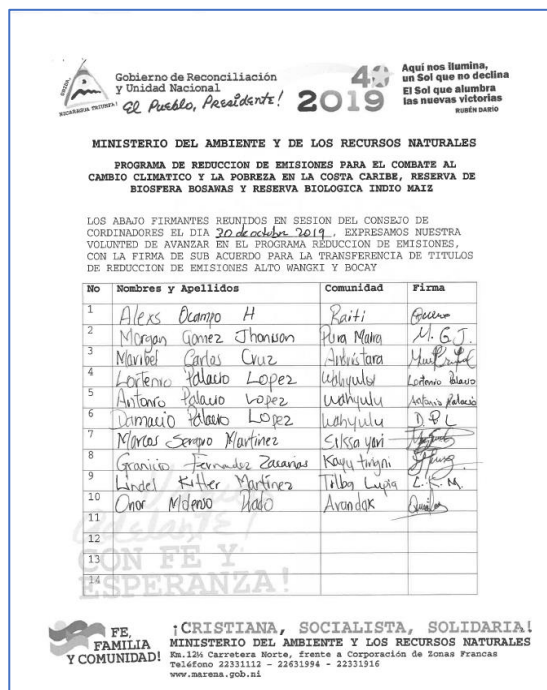 UNIDA,
NICARAGUA TRIUNFA!
Gobierno de Reconciliación
y Unidad Nacional
El Pueblo, Presidente!
40
2019
Aquí nos ilumina,
un Sol que no declina
El Sol que alumbra
las nuevas victorias
RUBÉN DARÍO
MINISTERIO DEL AMBIENTE Y DE LOS RECURSOS NATURALES
PROGRAMA DE REDUCCION DE EMISIONES PARA EL COMBATE AL
CAMBIO CLIMATICO Y LA POBREZA EN LA COSTA CARIBE, RESERVA DE
BIOSFERA BOSAWAS Y RESERVA BIOLOGICA INDIO MAIZ
LOS ABAJO FIRMANTES REUNIDOS EN SESION DEL CONSEJO DE
CORDINADORES EL DIA 30 de octubre 2019, EXPRESAMOS NUESTRA
VOLUNTED DE AVANZAR EN EL PROGRAMA REDUCCION DE EMISIONES,
CON LA FIRMA DE SUB ACUERDO PARA LA TRANSFERENCIA DE TITULOS
DE REDUCCION DE EMISIONES ALTO WANGKI Y BOCAY
No Nombres y Apellidos Comunidad Firma
1 Alexs Ocampo H Raiti
2 Morgan Gomez Jhonson M. G J.
3 Maribel Carlos Cruz
4 Lortenio Palacio Lopez Wahyulu Lortenio Palacio
5 Antonio Palacio Lopez wahyulu Antonio Palacio
6 Damacio Palacio Lopez wahyulu D. P L
7 Marcos Serapio Martinez Siksa yari
8 Granicio Fernandez Zacarias Kayu tingni
9 Lindel Kitler Martinez Tilba Lupia L. K. M.
10 Onor Avandak
11
12
13
14
Adelante!
CON FE Y
ESPERANZA!
FE,
FAMILIA
Y COMUNIDAD!
¡CRISTIANA, SOCIALISTA, SOLIDARIA!
MINISTERIO DEL AMBIENTE Y LOS RECURSOS NATURALES
Km.12½ Carretera Norte, frente a Corporación de Zonas Francas
Teléfono 22331112 - 22631994 - 22331916
www.marena.gob.ni